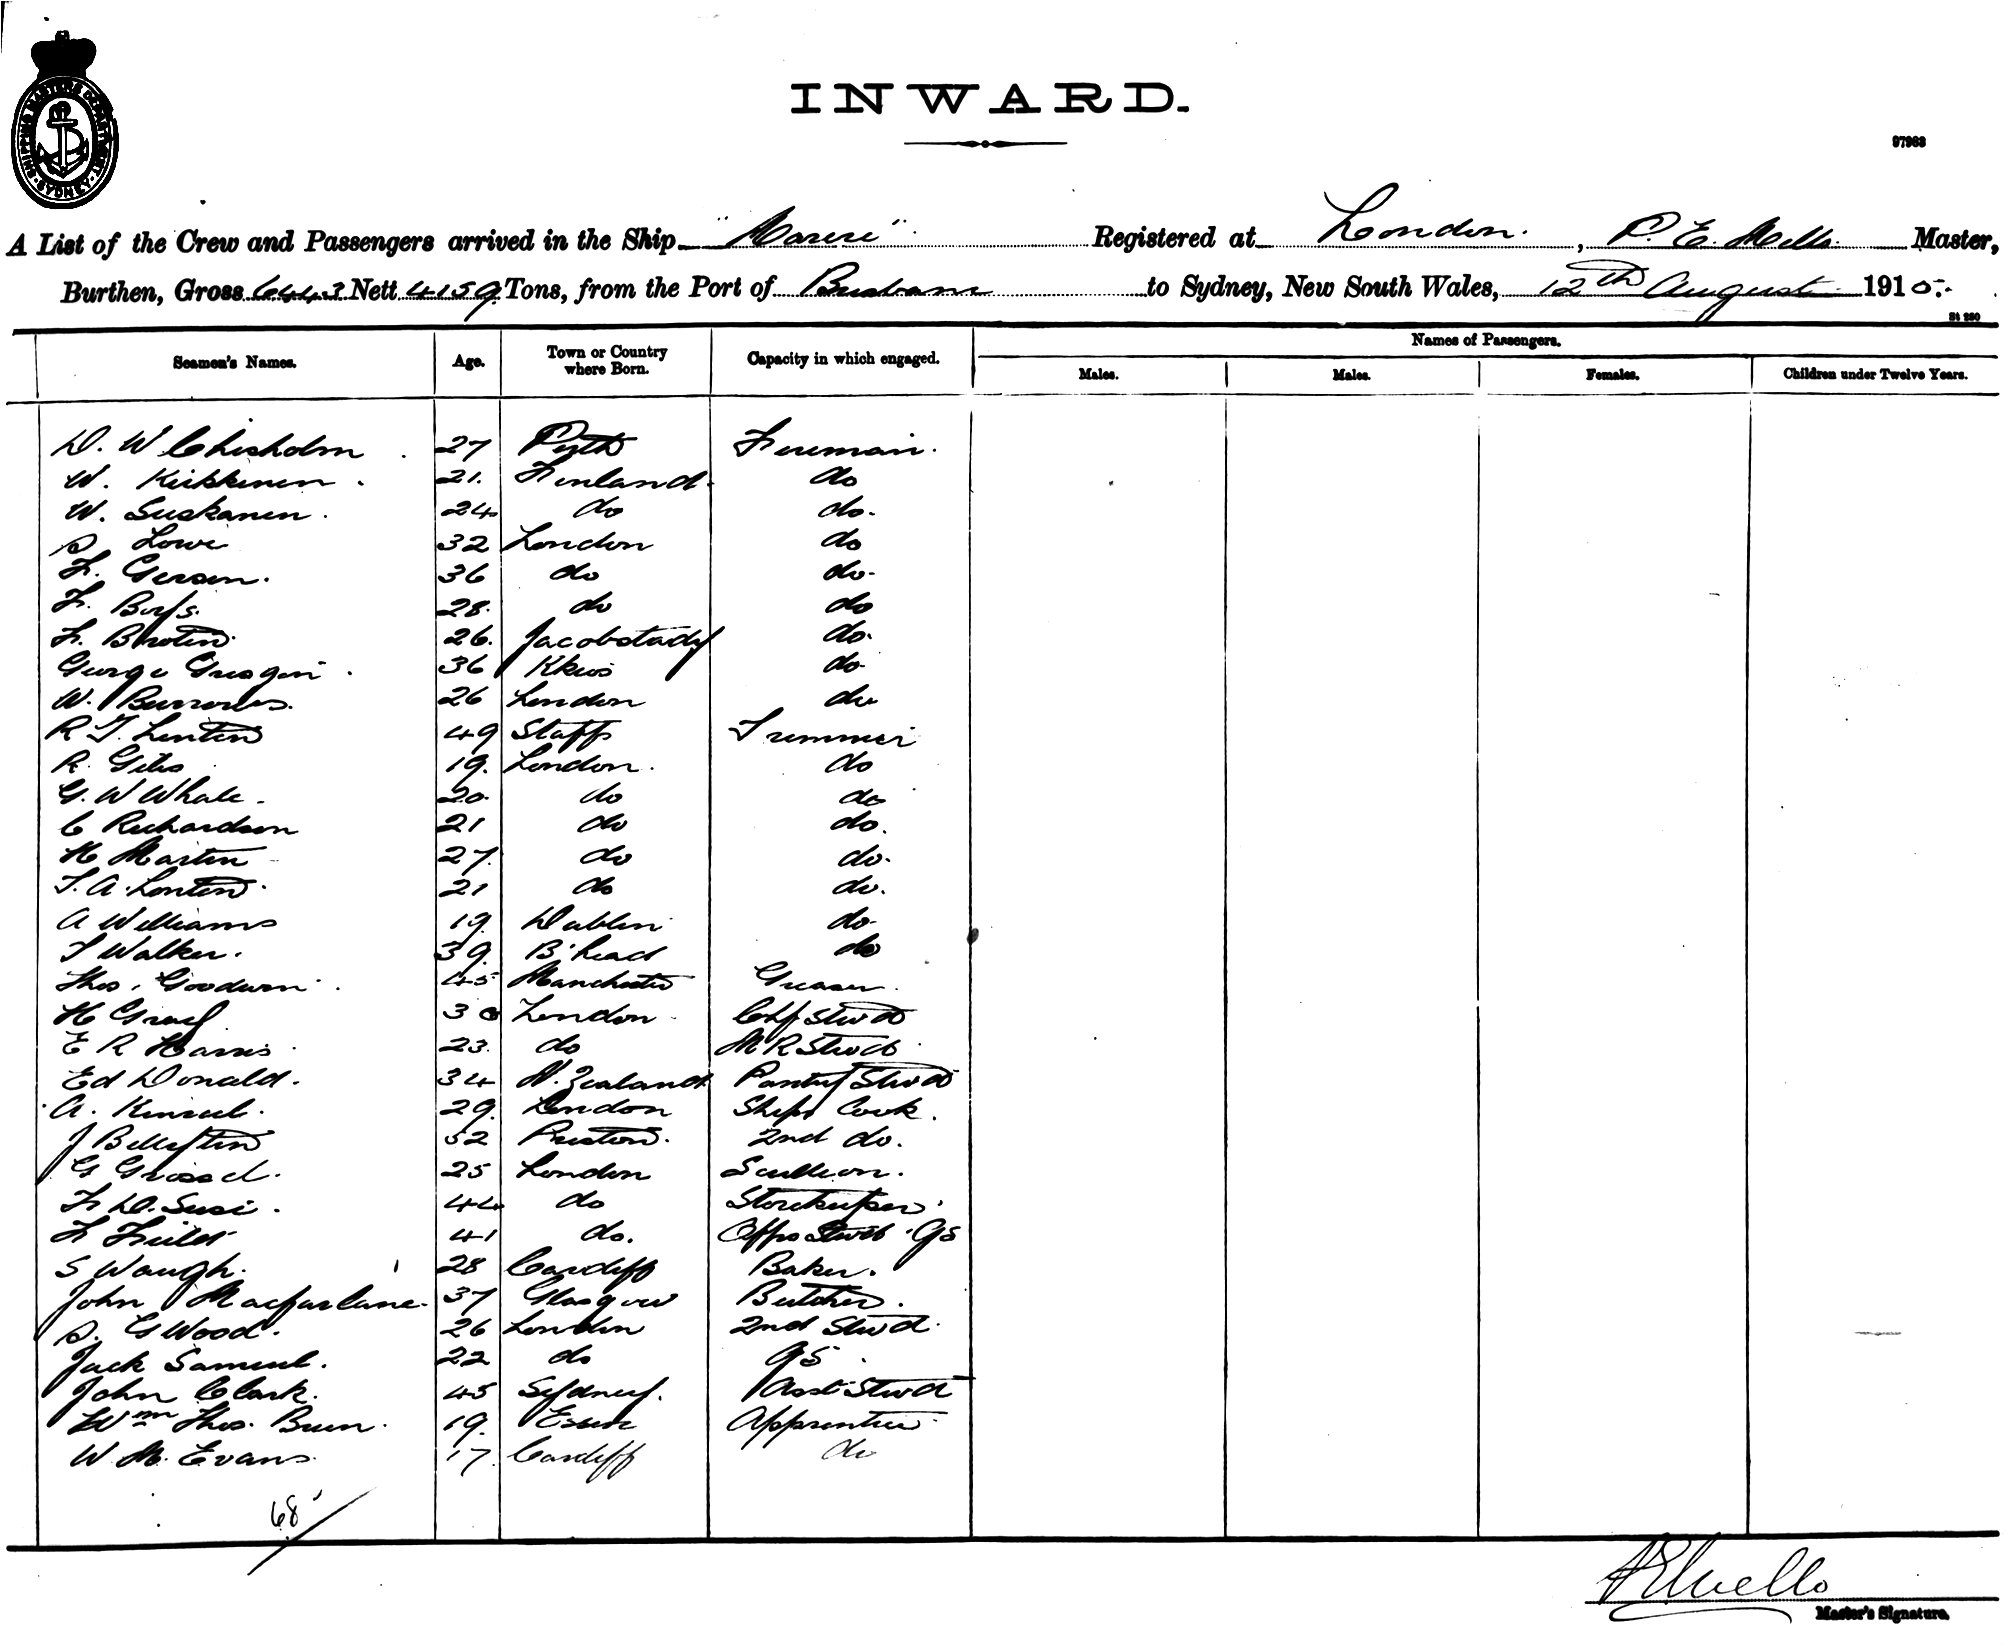 SHIPPING MASTERS DEPARTMENT. SYDNEY.
INWARD.
97963
A List of the Crew and Passengers arrived in the Ship "Marere" Registered at London, P. E. Mello. Master,
Burthen, Gross 6443 Nett 4159 Tons, from the Port of Brisbane to Sydney, New South Wales, 12th August 1910.
St 230
Seamen's Names. Age. Town or Country where Born. Capacity in which engaged. Names of Passengers.
Males. Males. Females. Children under Twelve Years.
D. W Chisholm 27 Perth Fireman.
W. Kirkkinen. 21. Finland. do
W. Suskanen. 24 do do.
S Lowe 32 London do
F. Gerson. 36 do do.
F. Boys. 28. do do
F. 26. Jacobstady do.
George 36 do
W. Burrows. 26 London do
R T. Lenton 49 Staffs Trimmer
R. Giles 19. London. do
G. W Whale. 20. do do
C Richardson 21 do do.
H Martin 27. do do.
T. A. Lenton. 21 do do.
A Williams 19. Dublin do
T Walker. 39. B'head do
Thos. Goodwin. 45 Manchester Greaser.
H 30 London Chf Stwd
E R Harris 23. do M R Stwd
Ed Donald. 34 N. Zealand Pantry Stwd
A. 29. London Ships Cook.
J 52 Preston. 2nd do.
G 25 London Scullion.
F. D. Susi. 44 do Storekeeper.
F Field 41 do. Offrs Stwd. GS
S Waugh. 28 Cardiff Baker.
John Macfarlane. 37 Glasgow Butcher.
S. G Wood. 26 London 2nd Stwd.
Jack Samuel. 22 do GS.
John Clark. 45 Sydney. Asst Stwd
Wm Thos. 19. Essex Apprentice
W. M. Evans. 17. Cardiff do
68
P E Mello
Master's Signature.